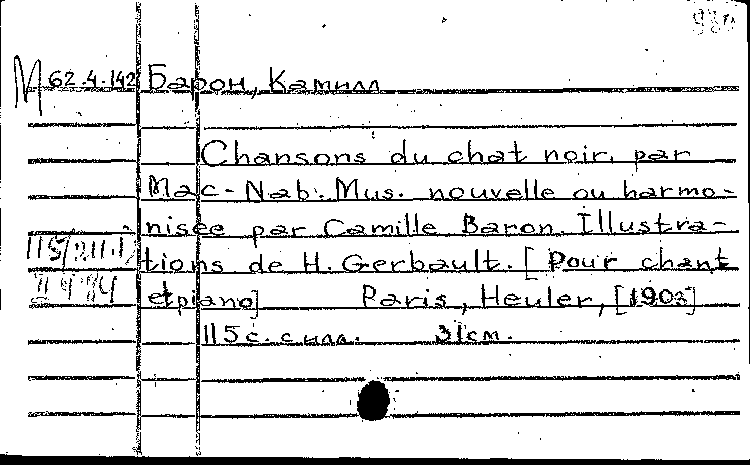 980
М 62.4.142 Барон, Камилл
Chansons du chat noir, par
Mac-Nab. Mus. nouvelle ou harmo-
nisée par Camille Baron. Illustra-
tions de H. Gerbault. [Pour chant
et piano] Paris, Heuler, [1903]
115 с. с илл. 31 см.